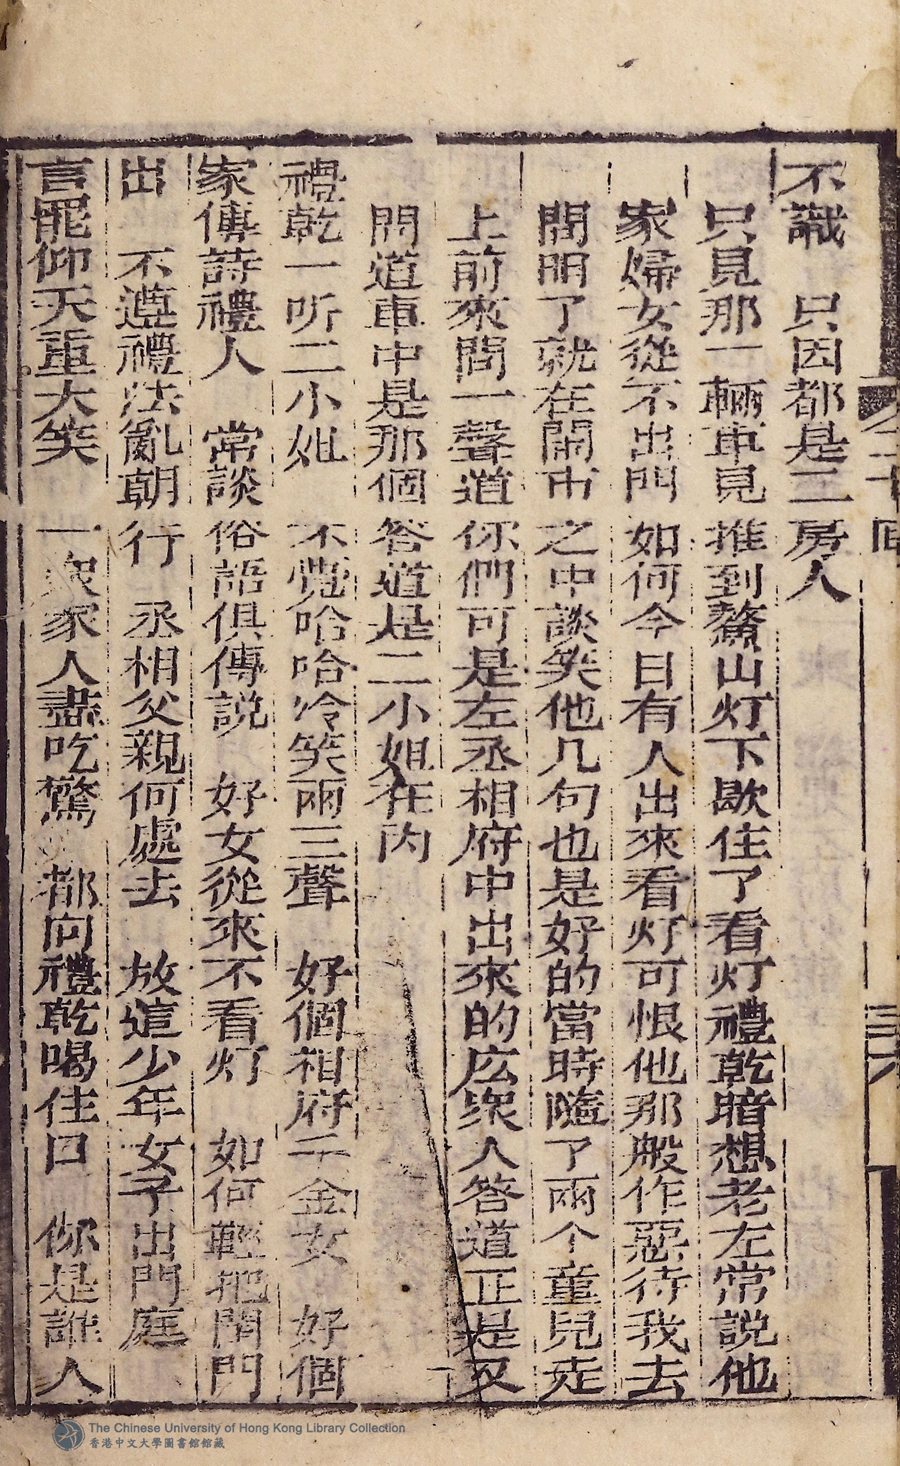 不識　只因都是二房人
只見那一輛車見推到鰲山灯下歇住了看灯禮乾暗想老左常説他
家婦女從不出門如何今日有人出來看灯可恨他那般作惡待我去
問明了就在閙市之中談笑他几句也是好的當時隨了兩个童兒走
上前來問一聲道你們可是左丞相府中出來的庅衆人答道正是又
問道車中是那個答道是二小姐在内
禮乾一听二小姐　不覺哈哈冷笑兩三聲　好個相府千金女　好個
家傳詩禮人　常談俗語俱傳説　好女從來不看灯　如何輕把閨門
出　不遵禮法亂朝行　丞相父親何處去　放這少年女子出門庭
言罷仰天重大笑　一衆家人盡吃驚　都向禮乾喝住口　你是誰人
二十回
三六
The Chinese University of Hong Kong Library Collection
香港中文大學圖書館館藏